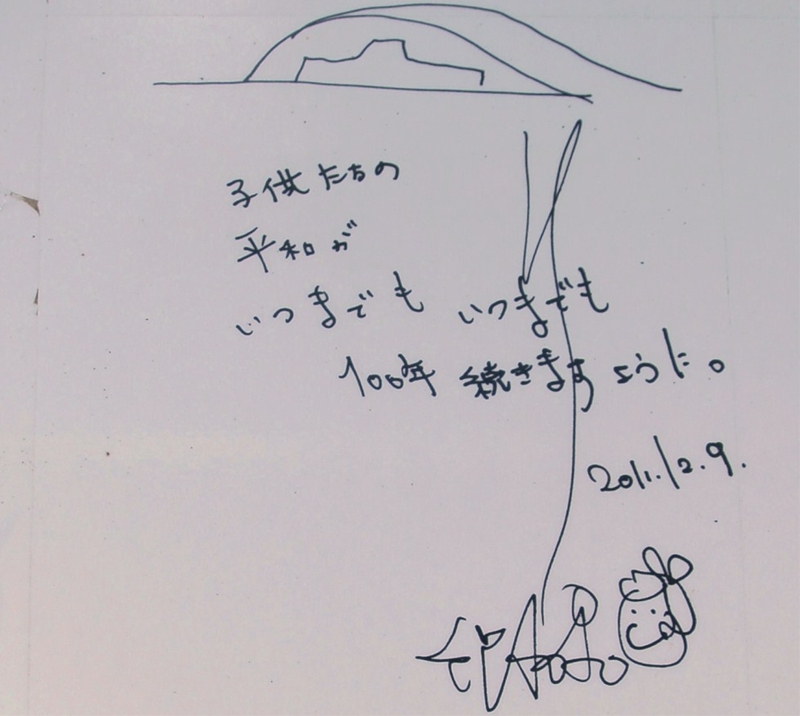 子供たちの
平和が
いつまでも いつまでも
100年 続きますように。
2011.12.9.